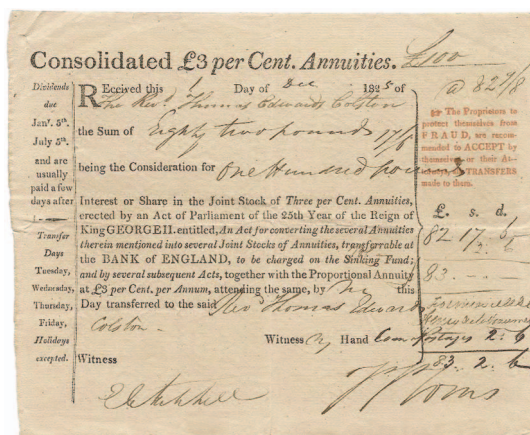 Consolidated £3 per Cent. Annuities. £100
@ 82 7/8
Dividends
due
Jany. 5th.
July 5th.
and are
usually
paid a few
days after
Transfer
Days
Tuesday,
Wednesday,
Thursday,
Friday,
Holidays
excepted.
REceived this 1 Day of Dec 1825 of
The Revd. Thomas Edwards Colston
the Sum of Eighty two pounds 17/6
being the Consideration for One Hundred pounds
Interest or Share in the Joint Stock of Three per Cent. Annuities,
erected by an Act of Parliament of the 25th Year of the Reign of
King GEORGE II. entitled, An Act for converting the several Annuities
therein mentioned into several Joint Stocks of Annuities, transferrable at
the BANK of ENGLAND, to be charged on the Sinking Fund;
and by several subsequent Acts, together with the Proportional Annuity
at £3 per Cent. per Annum, attending the same, by me this
Day transferred to the said Revd Thomas Edwards
Colston
Witness my Hand
Witness
The Proprietors to
protect themselves from
FRAUD, are recom-
mended to ACCEPT by
themselves or their At-
TRANSFERS
made to them.
£. s. d.
82 17 6
2 6
83 - -
2 6
83 2 6